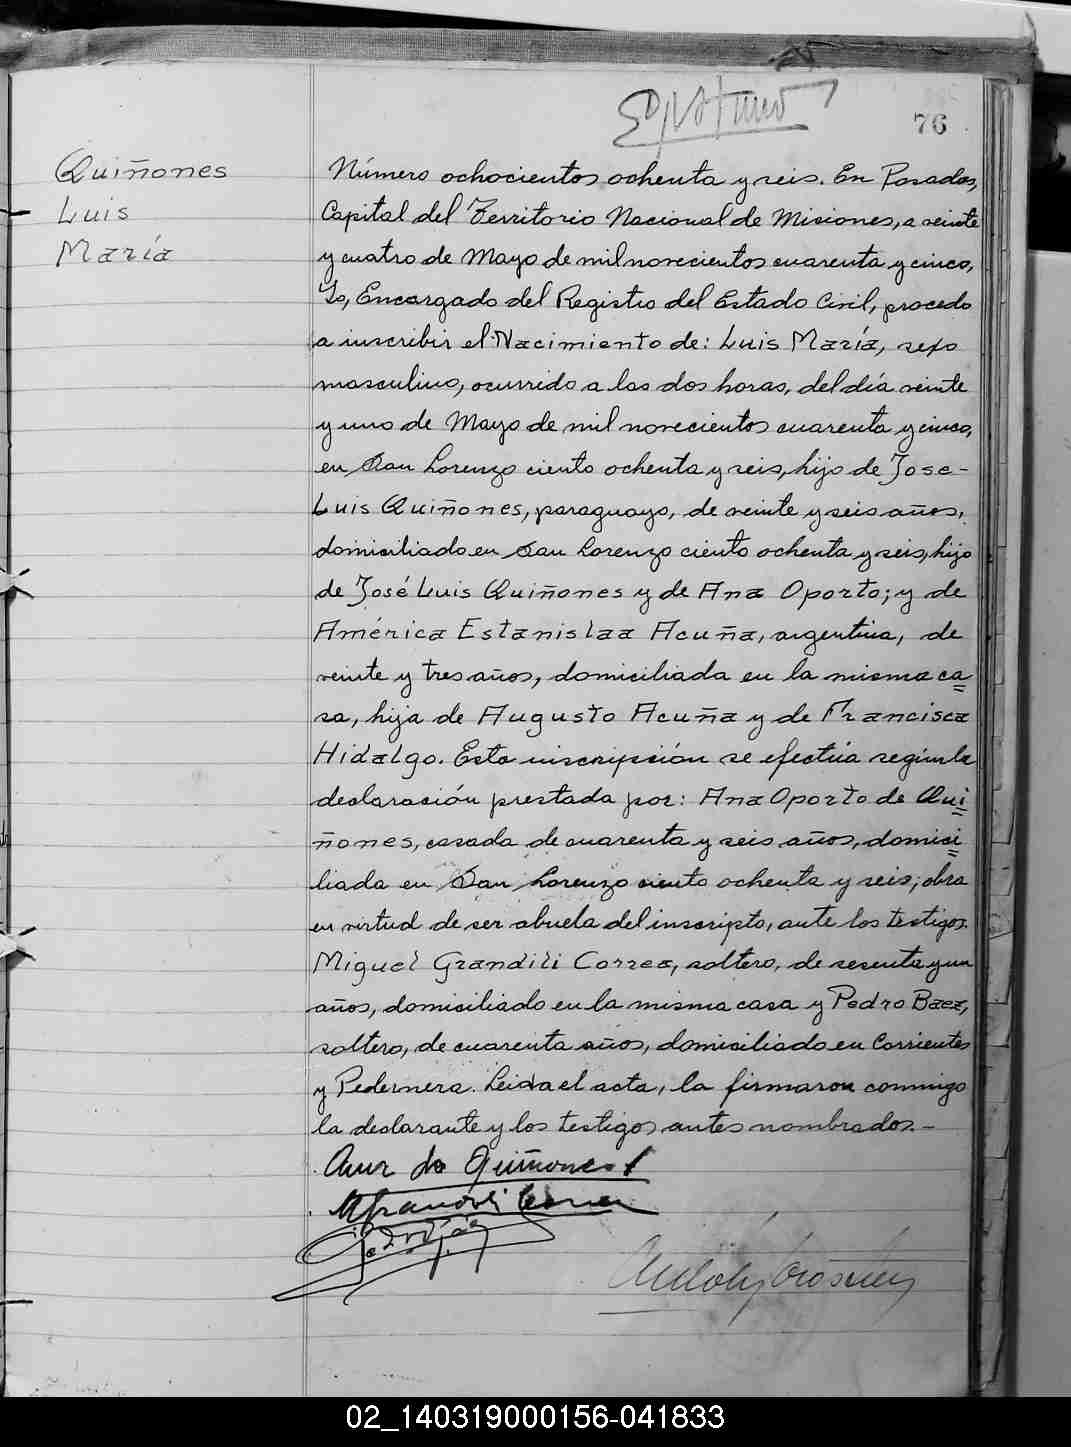 76
Quiñones
Luis
María
Número ochocientos ochenta y seis. En Posadas,
Capital del Territorio Nacional de Misiones, a veinte
y cuatro de Mayo de mil novecientos cuarenta y cinco,
Yo, Encargado del Registro del Estado Civil, procedo
a inscribir el Nacimiento de: Luis María, sexo
masculino, ocurrido a las dos horas, del día veinte
y uno de Mayo de mil novecientos cuarenta y cinco,
en San Lorenzo ciento ochenta y seis, hijo de Jose-
Luis Quiñones, paraguayo, de veinte y seis años,
domiciliado en San Lorenzo ciento ochenta y seis, hijo
de José Luis Quiñones y de Ana Oporto; y de
América Estanislaa Acuña, argentina, de
veinte y tres años, domiciliada en la misma ca=
sa, hija de Augusto Acuña y de Francisca
Hidalgo. Esta inscripción se efectúa según la
declaración prestada por: Ana Oporto de Qui=
ñones, casada de cuarenta y seis años, domici=
liada en San Lorenzo ciento ochenta y seis; obra
en virtud de ser abuela del inscripto, ante los testigos.
Miguel Grandili Correa, soltero, de sesenta y un
años, domiciliado en la misma casa y Pedro Baez,
soltero, de cuarenta años, domiciliado en Corrientes
y Pedernera. Leida el acta, la firmaron conmigo
la declarante y los testigos antes nombrados.-
Ana de Quiñones
02_140319000156-041833